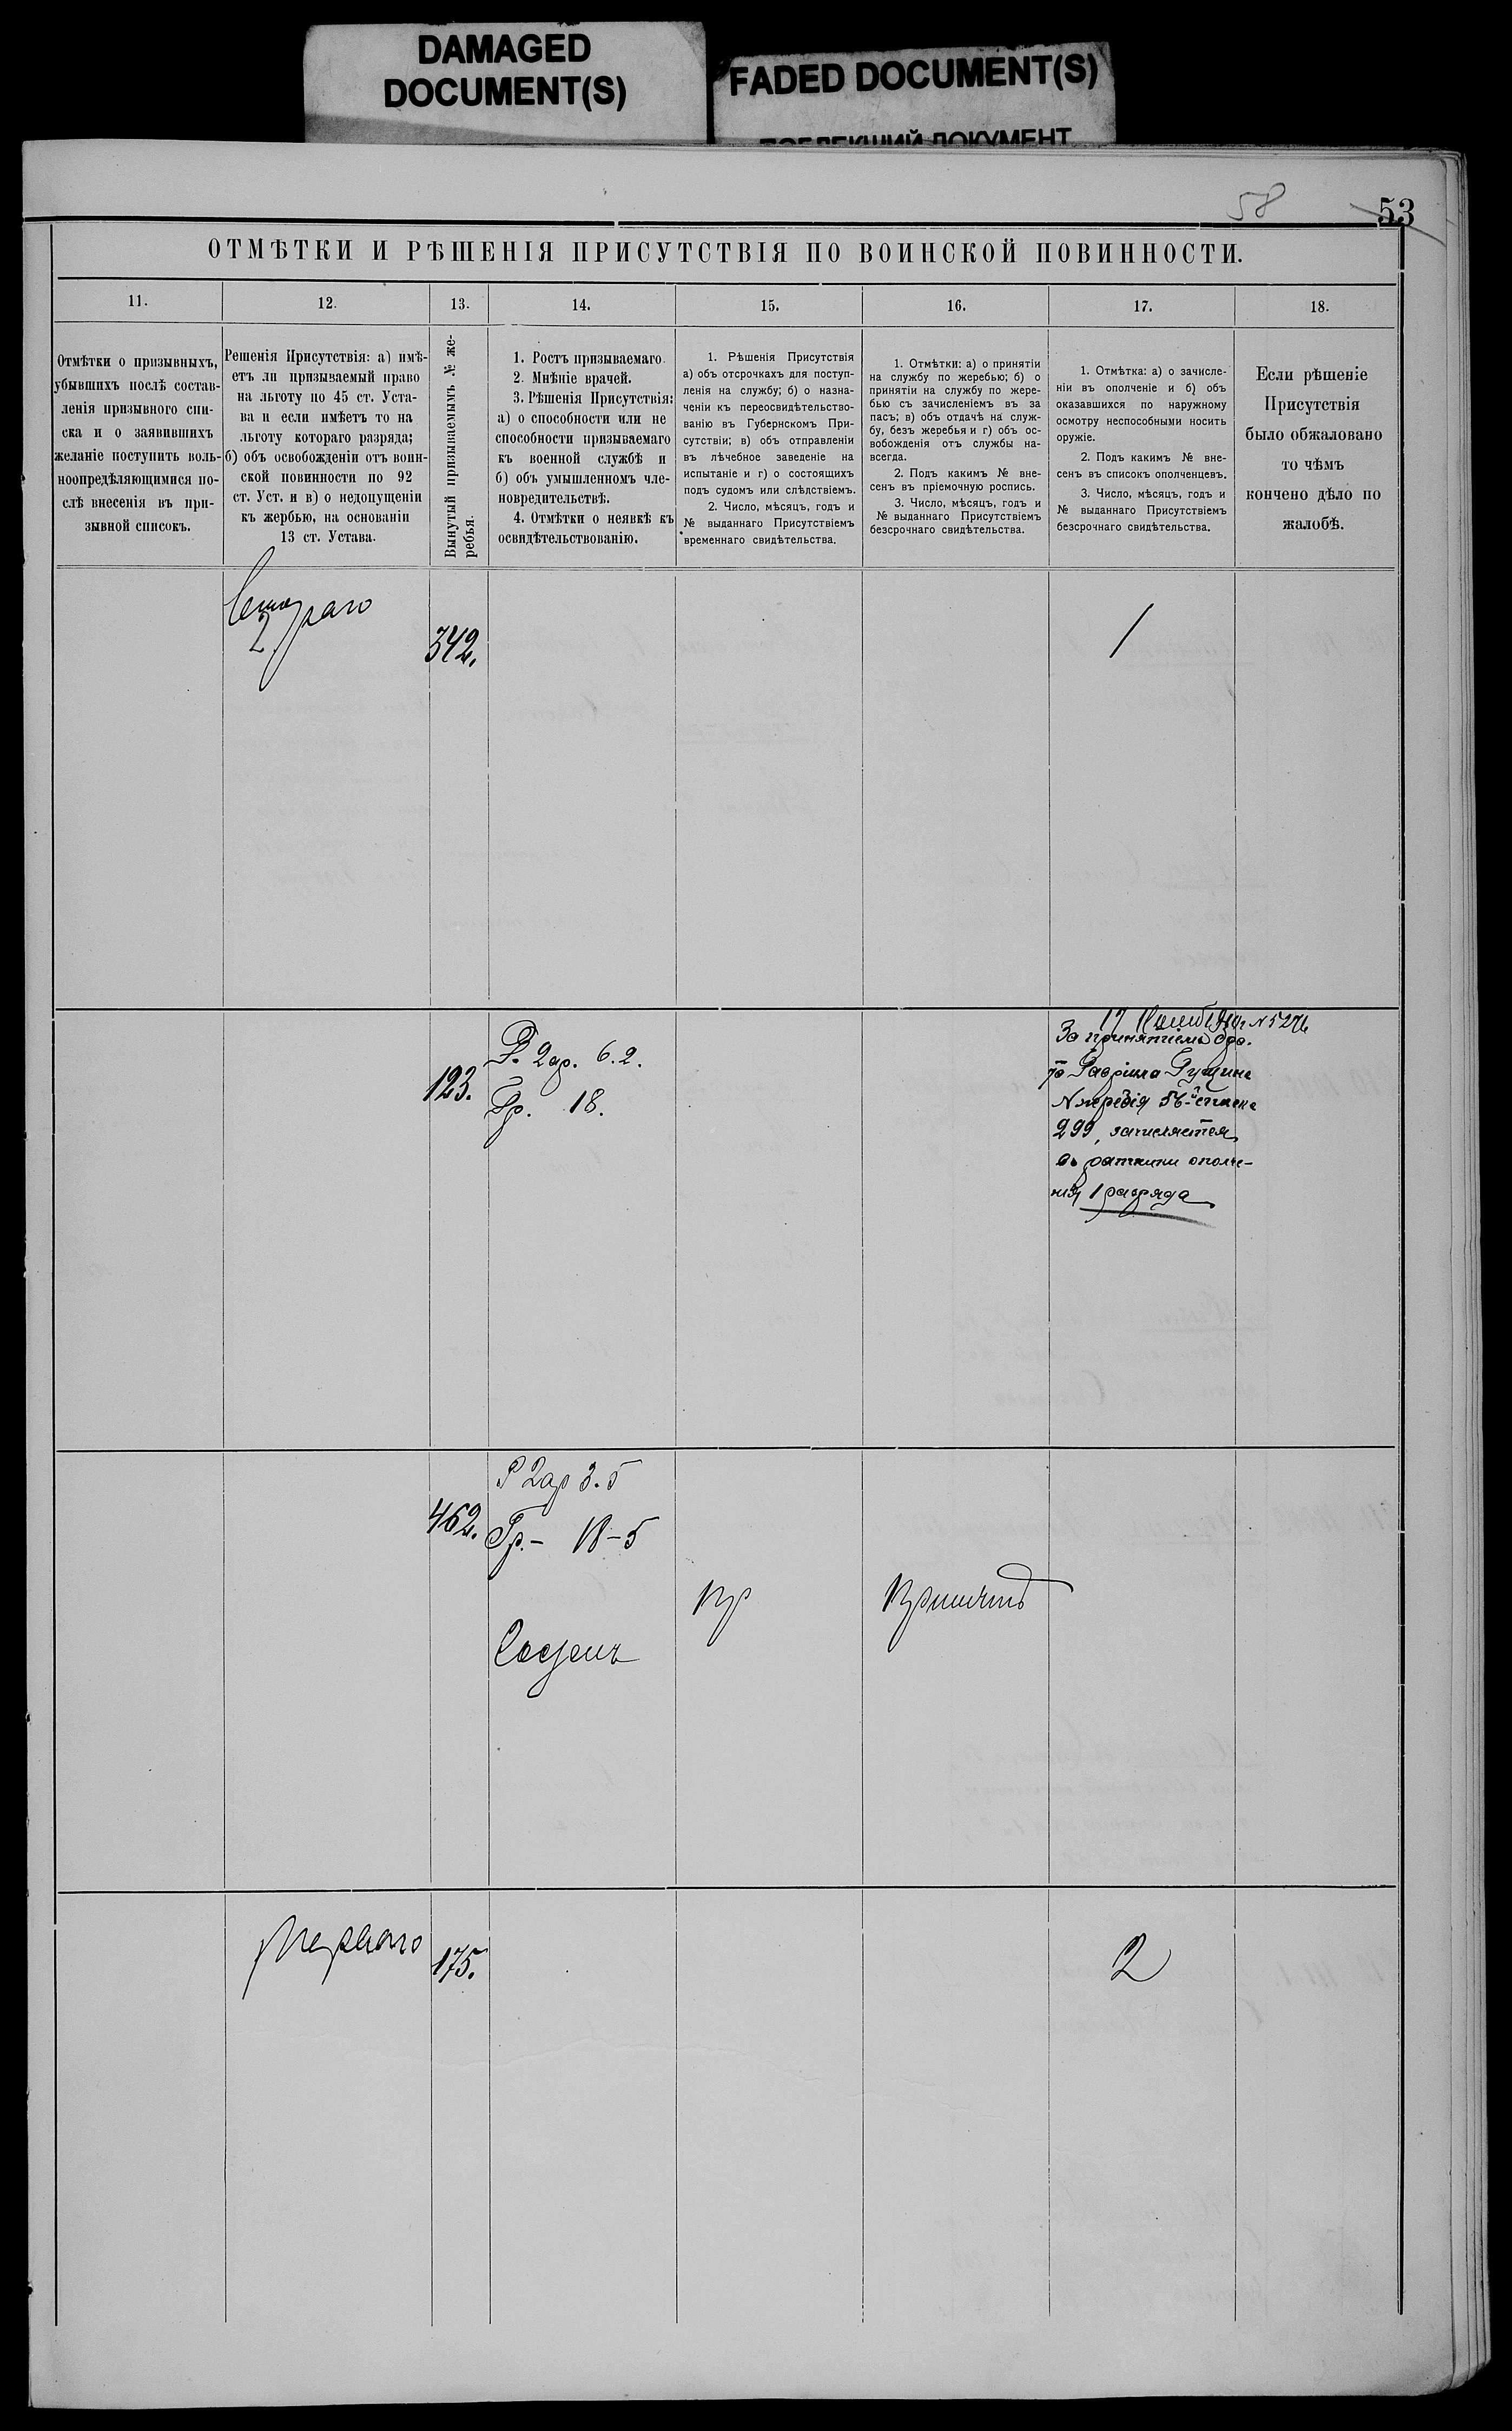 DAMAGED
DOCUMENT(S)
FADED DOCUMENT(S)
ПОБЛЕКШИЙ ДОКУМЕНТ
58
53
ОТМѢТКИ И РѢШЕНІЯ ПРИСУТСТВІЯ ПО ВОИНСКОЙ ПОВИННОСТИ.
11.
12.
13.
14.
15.
16.
17.
18.
Отмѣтки о призывныхъ,
убывшихъ послѣ состав-
ленія призывного спи-
ска и о заявившихъ
желаніе поступить воль-
ноопредѣляющимися по-
слѣ внесенія въ при-
зывной списокъ.
Решенія Присутствія: а) имѣ-
етъ ли призываемый право
на льготу по 45 ст. Уста-
ва и если имѣетъ то на
льготу котораго разряда;
б) объ освобожденіи отъ воин-
ской повинности по 92
ст. Уст. и в) о недопущеніи
къ жербью, на основаніи
13 ст. Устава.
Вынутый призываемымъ № же-
ребья.
1. Ростъ призываемаго.
2. Мнѣніе врачей.
3. Рѣшенія Присутствія:
а) о способности или не
способности призываемаго
къ военной службѣ и
б) объ умышленномъ чле-
новредительствѣ.
4. Отмѣтки о неявкѣ къ
освидѣтельствованію.
1. Рѣшенія Присутствія
а) объ отсрочкахъ для поступ-
ленія на службу; б) о назна-
ченіи къ переосвидѣтельство-
ванію въ Губернскомъ При-
сутствіи; в) объ отправленіи
въ лѣчебное заведеніе на
испытаніе и г) о состоящихъ
подъ судомъ или слѣдствіемъ.
2. Число, мѣсяцъ, годъ и
№ выданнаго Присутствіемъ
временнаго свидѣтельства.
1. Отмѣтки: а) о принятіи
на службу по жеребью; б) о
принятіи на службу по жере-
бью съ зачисленіемъ въ за
пасъ; в) объ отдачѣ на служ-
бу, безъ жеребья и г) объ ос-
вобожденія отъ службы на-
всегда.
2. Подъ какимъ № вне-
сенъ въ пріемочную роспись.
3. Число, мѣсяцъ, годъ и
№ выданнаго Присутствіемъ
безсрочнаго свидѣтельства.
1. Отмѣтка: а) о зачисле-
ніи въ ополченіе и б) объ
оказавшихся по наружному
осмотру неспособными носить
оружіе.
2. Подъ какимъ № вне-
сенъ въ списокъ ополченцевъ.
3. Число, мѣсяцъ, годъ и
№ выданнаго Присутствіемъ
безсрочнаго свидѣтельства.
Если рѣшеніе
Присутствія
было обжаловано
то чѣмъ
кончено дѣло по
жалобѣ.
Втораго
2
342.
1
123.
Р. 2 ар. 6. 2.
Гр. 18.
17 № 5276
За принятіемъ
Гавріила
№ жеребія
299, зачисляется
въ ратники ополче-
нія 1 разряда
462.
Р 2 ар 3. 5
Гр. - 18 - 5
Годенъ
пр
Принятъ
Перваго
175.
2